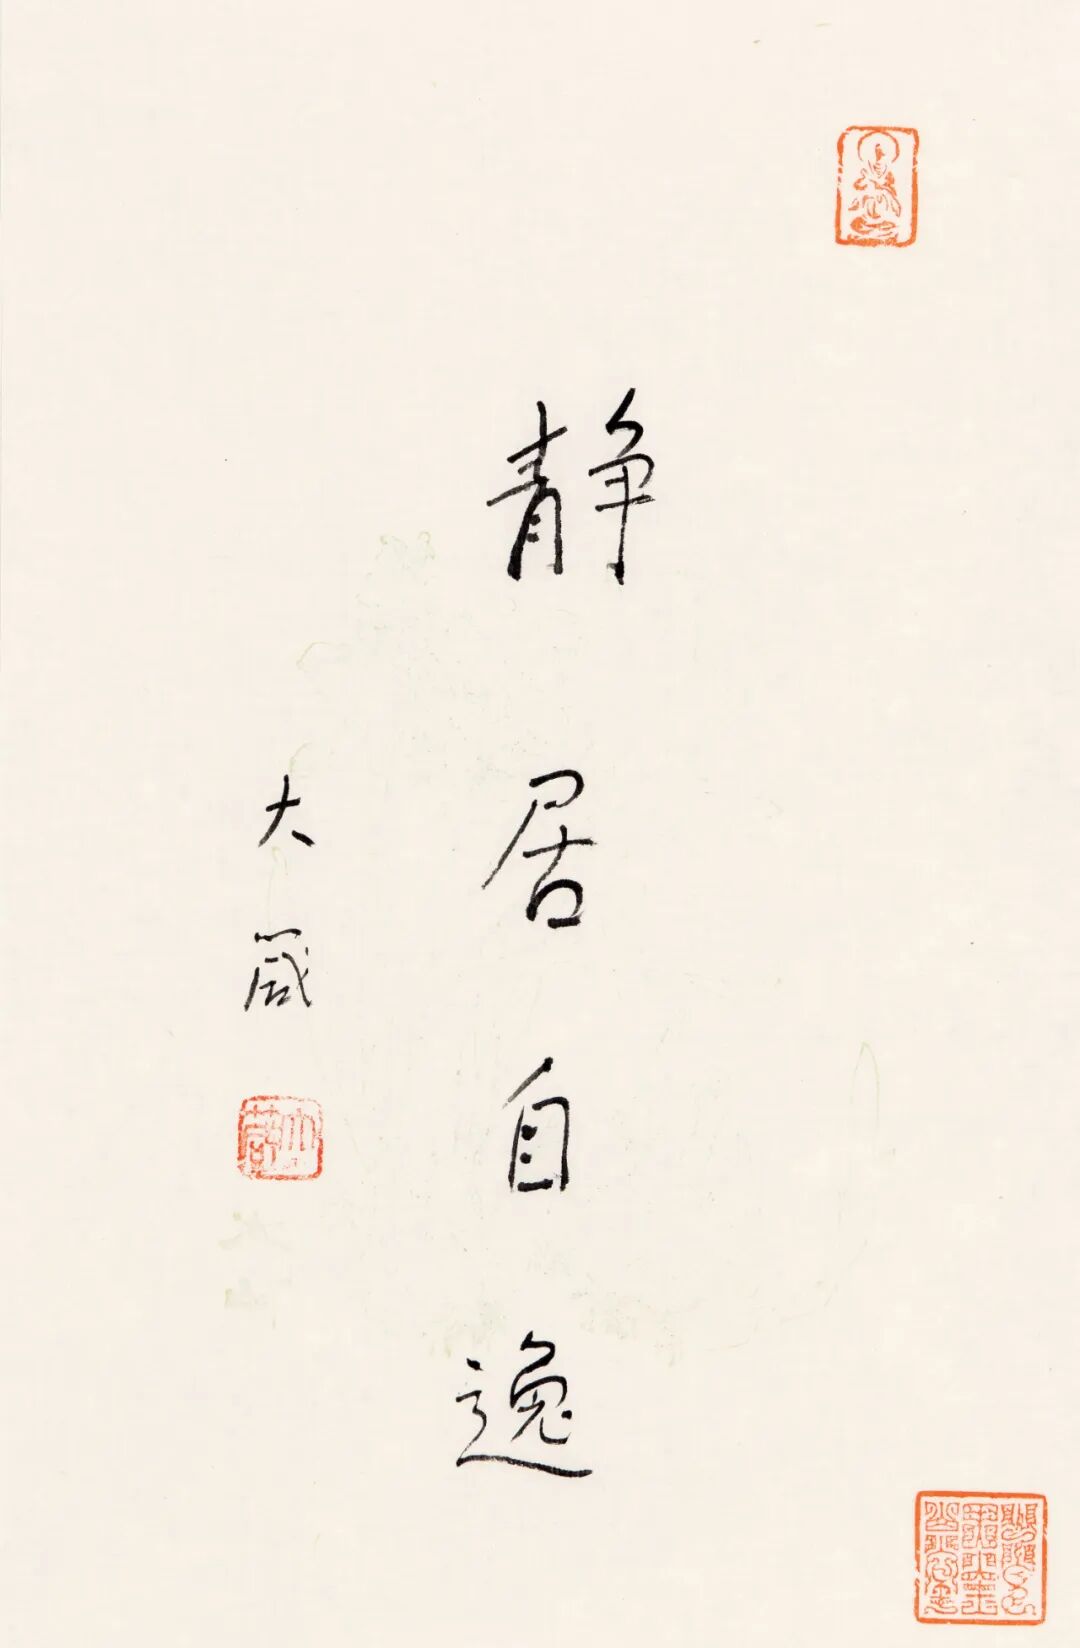 静居自逸
大箴